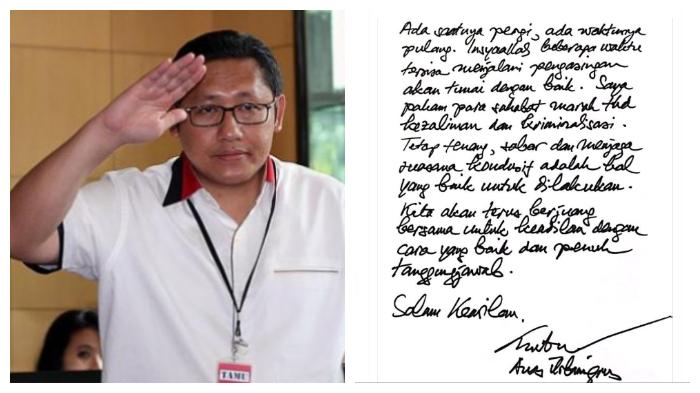 TAMU
Ada saatnya pergi, ada waktunya
pulang. Insyaallah beberapa waktu
tersisa menjalani pengasingan
akan tunai dengan baik. Saya
paham para sahabat marah thd
kezaliman dan kriminalisasi.
Tetap tenang, sabar dan menjaga
suasana kondusif adalah hal
yang baik untuk dilakukan.
Kita akan terus berjuang
bersama untuk keadilan dengan
cara yang baik dan penuh
tanggungjawab.
Salam Keadilan.
Anas